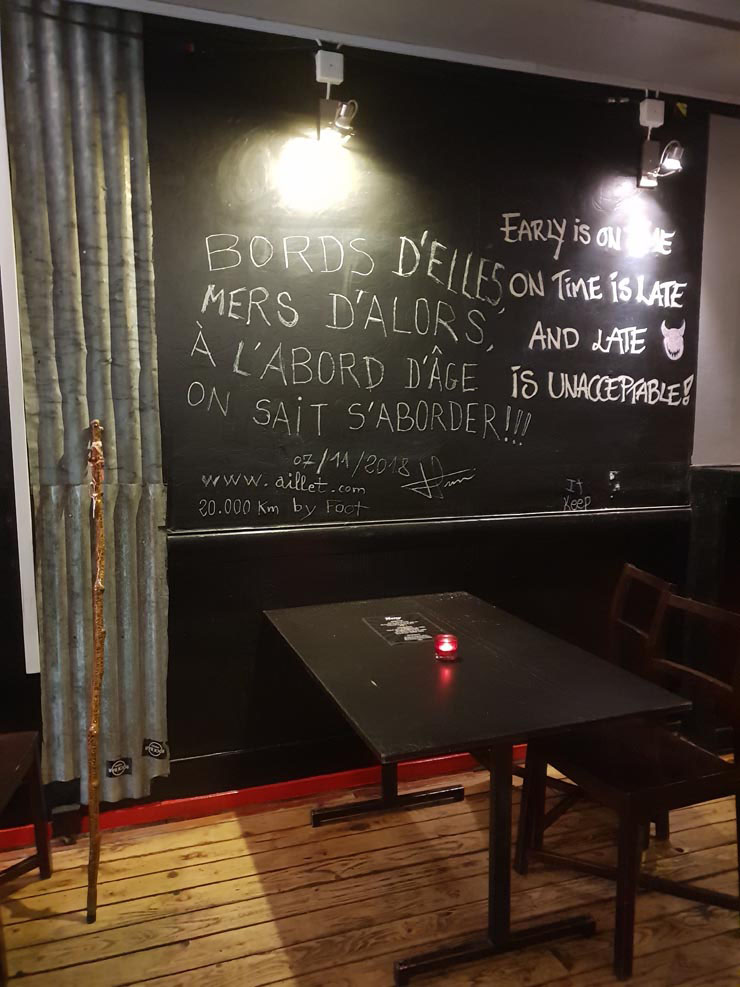 BORDS D'ELLES
MERS D'ALORS,
À L'ABORD D'ÂGE
ON SAIT S'ABORDER!!!
07/11/2018
www.aillet.com
20.000 Km by Foot
EARLY IS ON
ON TIME IS LATE
AND LATE
IS UNACCEPTABLE!
It
Keep